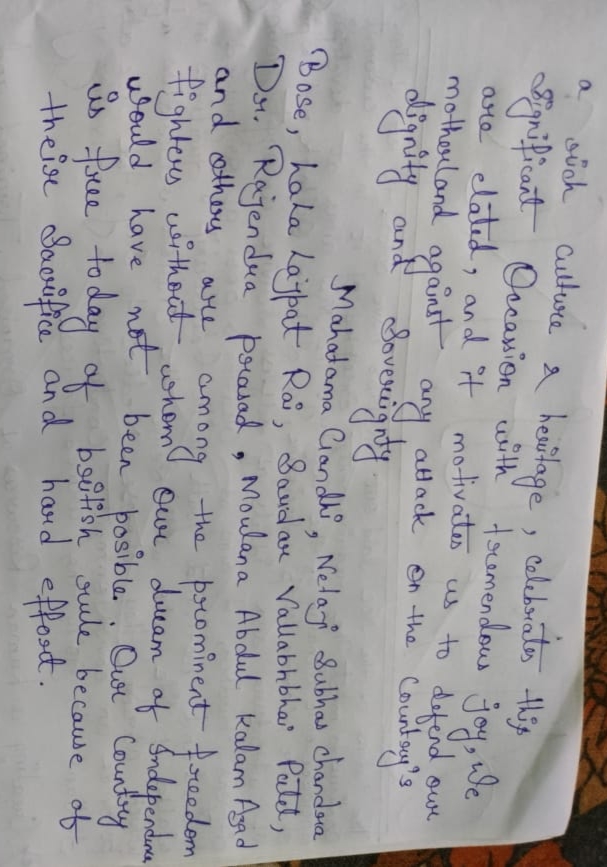 a rich culture & heritage, celebrates this
significant Occassion with tremendous joy, We
are elated, and it motivates us to defend our
motherland against any attack on the country's
dignity and Sovereignty.
Mahatama Gandhi, Netaji Subhas chandra
Bose, Lala Lajpat Rai, Sardar Vallabhbhai Patel,
Dr. Rajendra prasad, Moulana Abdul Kalam Azad
and others are among the prominent freedom
fighters without whom Our dream of Independence
would have not been posible. Our Country
is free today of british rule because of
their Sacrifice and hard effort.